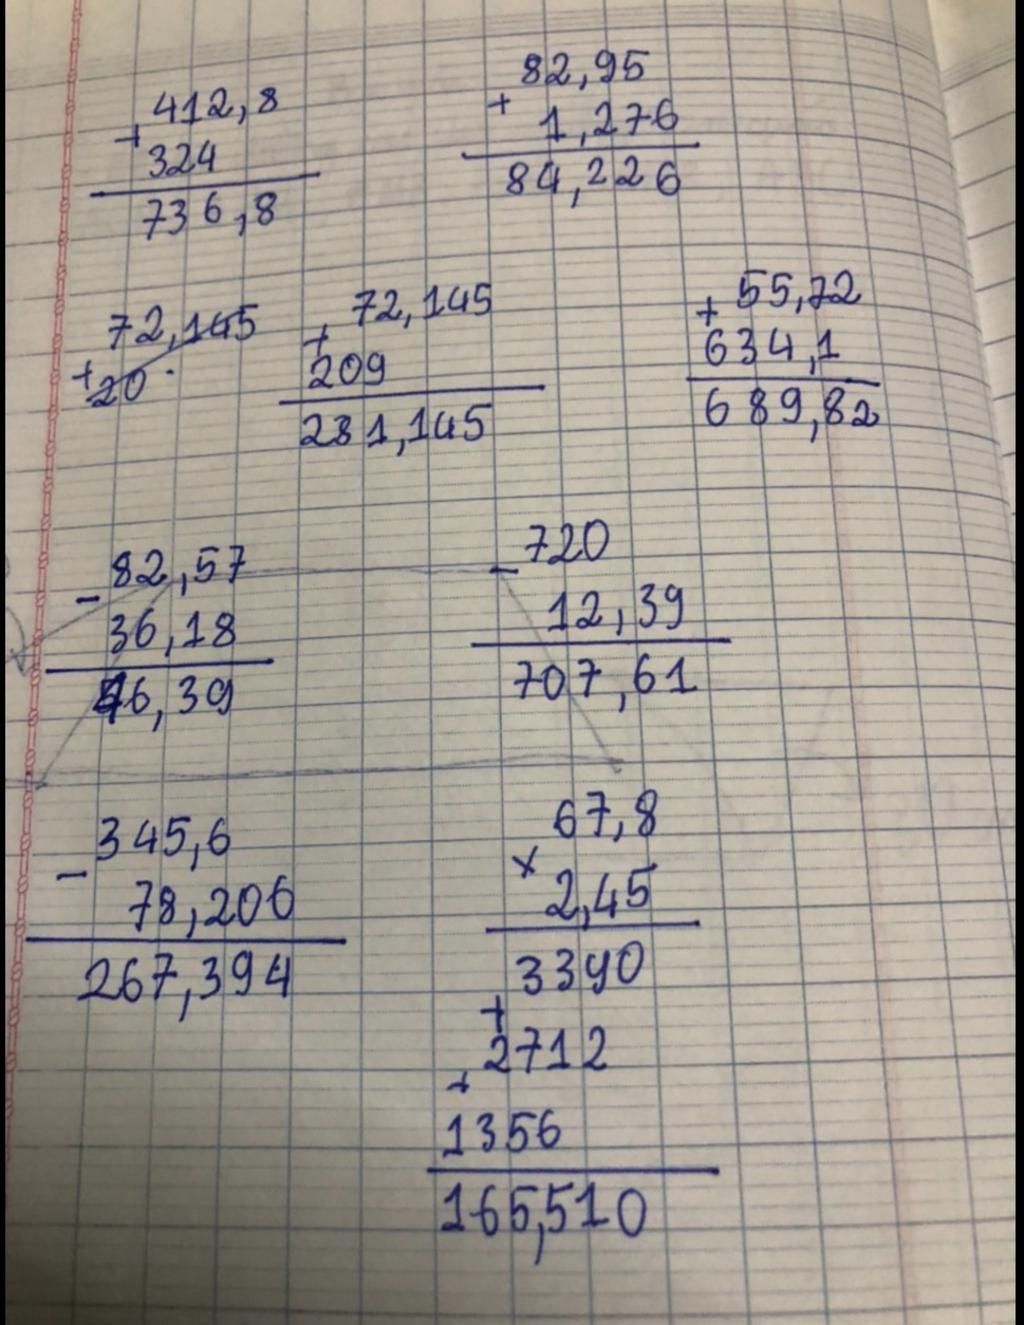 412,8
+
324
736,8
82,95
+
1,276
84,226
72,145
+
20
72,145
+
209
281,145
55,72
+
634,1
689,82
82,57
-
36,18
46,39
720
-
12,39
707,61
345,6
-
78,206
267,394
67,8
x
2,45
3390
+
2712
+
1356
165,510